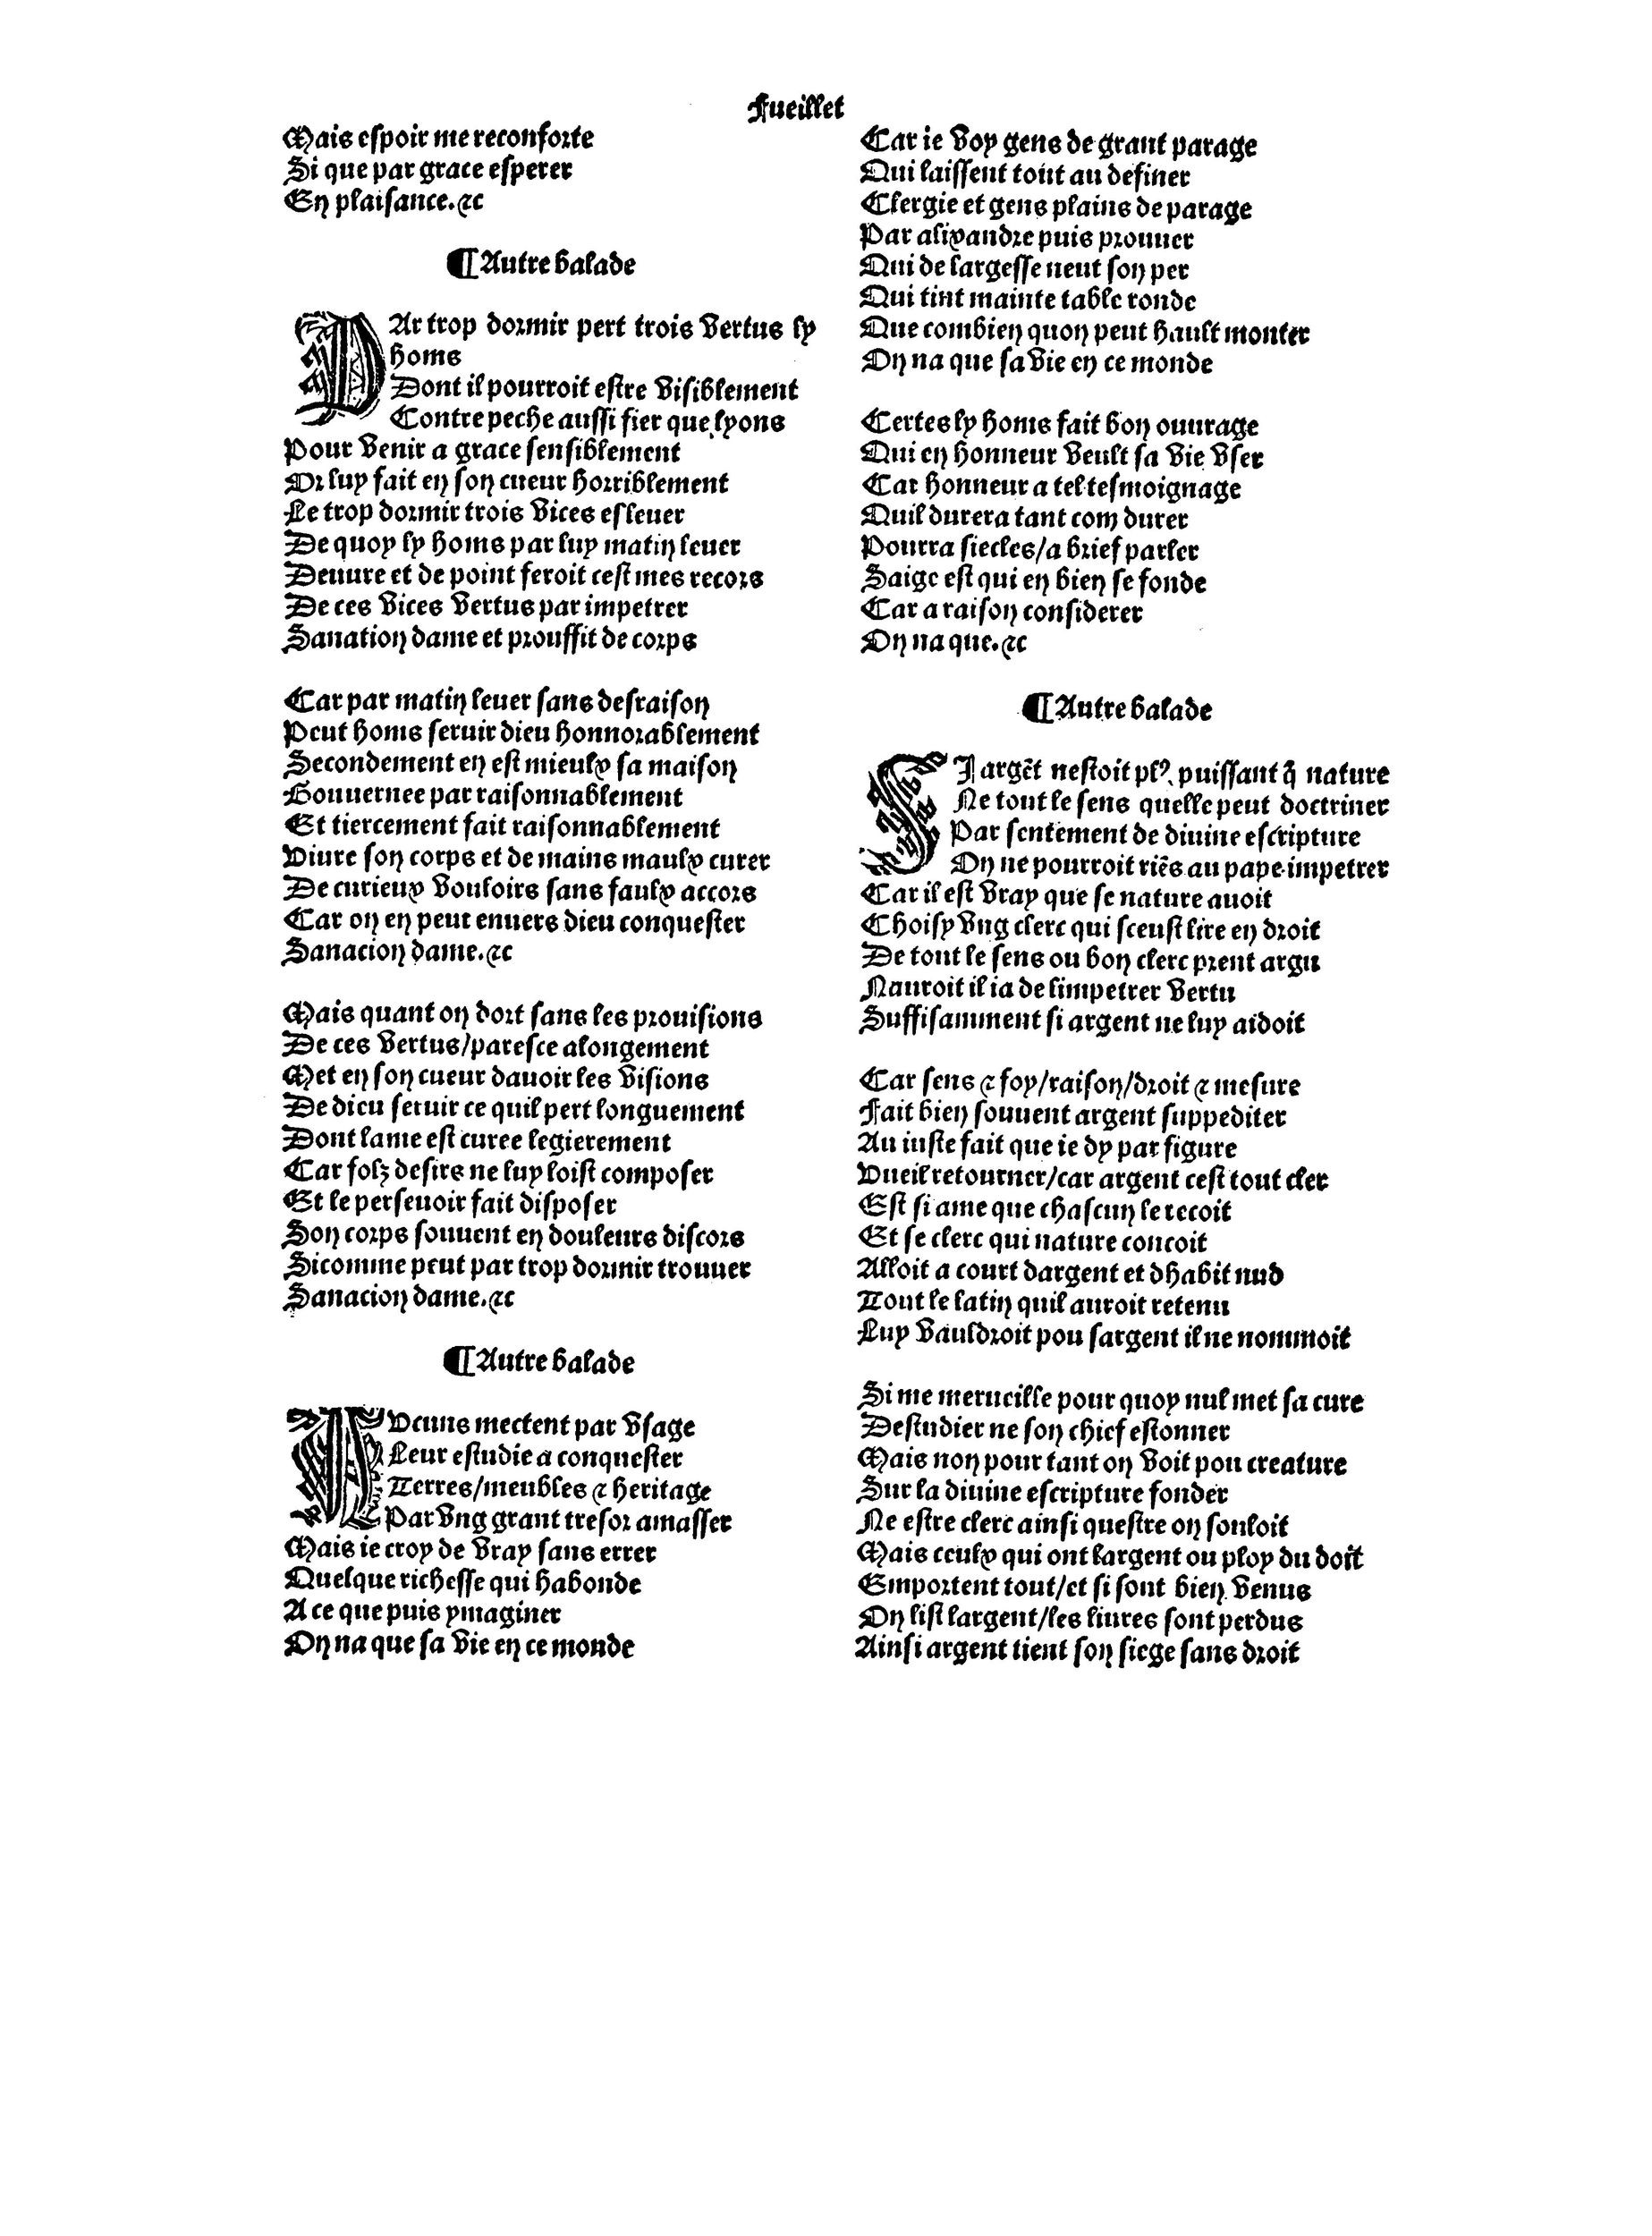 Fueillet
Mais espoir me reconforte
Si que par grace esperer
En plaisance.⁊c
¶Autre balade
PAr trop dormir pert trois vertus ly
homs
Dont il pourroit estre visiblement
Contre peche aussi fier que lyons
Pour venir a grace sensiblement
Or luy fait en son cueur horriblement
Le trop dormir trois vices esleuer
De quoy ly homs par luy matin leuer
Deuure et de point feroit cest mes recors
De ces vices vertus par impetrer
Sanation dame et prouffit de corps
Car par matin leuer sans desraison
Peut homs seruir dieu honnorablement
Secondement en est mieulx sa maison
Gouuernee par raisonnablement
Et tiercement fait raisonnablement
Viure son corps et de mains maulx curer
De curieux vouloirs sans faulx accors
Car on en peut enuers dieu conquester
Sanacion dame.⁊c
Mais quant on dort sans les prouisions
De ces vertus/paresce alongement
Met en son cueur dauoir les visions
De dieu seruir ce quil pert longuement
Dont lame est curee legierement
Car folz desirs ne luy loist composer
Et le perseuoir fait disposer
Son corps souuent en douleurs discors
Sicomme peut par trop dormir trouuer
Sanacion dame.⁊c
¶Autre balade
AVcuns mectent par vsage
Leur estudie a conquester
Terres/meubles ⁊ heritage
Par vng grant tresor amasser
Mais ie croy de vray sans errer
Quelque richesse qui habonde
A ce que puis ymaginer
On na que sa vie en ce monde
Car ie voy gens de grant parage
Qui laissent tout au definer
Clergie et gens plains de parage
Par alixandre puis prouuer
Qui de largesse neut son per
Qui tint mainte table ronde
Que combien quon peut hault monter
On na que sa vie en ce monde
Certes ly homs fait bon ouurage
Qui en honneur veult sa vie vser
Car honneur a tel tesmoignage
Quil durera tant com durer
Pourra siecles/a brief parler
Saige est qui en bien se fonde
Car a raison considerer
On na que.⁊c
¶Autre balade
SI argẽt nestoit plꝰ puissant q̃ nature
Ne tout le sens quelle peut doctriner
Par sentement de diuine escripture
On ne pourroit riẽs au pape impetrer
Car il est vray que se nature auoit
Choisy vng clerc qui sceust lire en droit
De tout le sens ou bon clerc prent argu
Nauroit il ia de limpetrer vertu
Suffisamment si argent ne luy aidoit
Car sens ⁊ foy/raison/droit ⁊ mesure
Fait bien souuent argent suppediter
Au iuste fait que ie dy par figure
Vueil retourner/car argent cest tout cler
Est si ame que chascun le recoit
Et se clerc qui nature concoit
Alloit a court dargent et dhabit nud
Tout le latin quil auroit retenu
Luy vauldroit pou sargent il ne nommoit
Si me merueille pour quoy nul met sa cure
Destudier ne son chief estonner
Mais non pour tant on voit pou creature
Sur la diuine escripture fonder
Ne estre clerc ainsi questre on souloit
Mais ceulx qui ont largent ou ploy du doit
Emportent tout/et si sont bien venus
On list largent/les liures sont perdus
Ainsi argent tient son siege sans droit